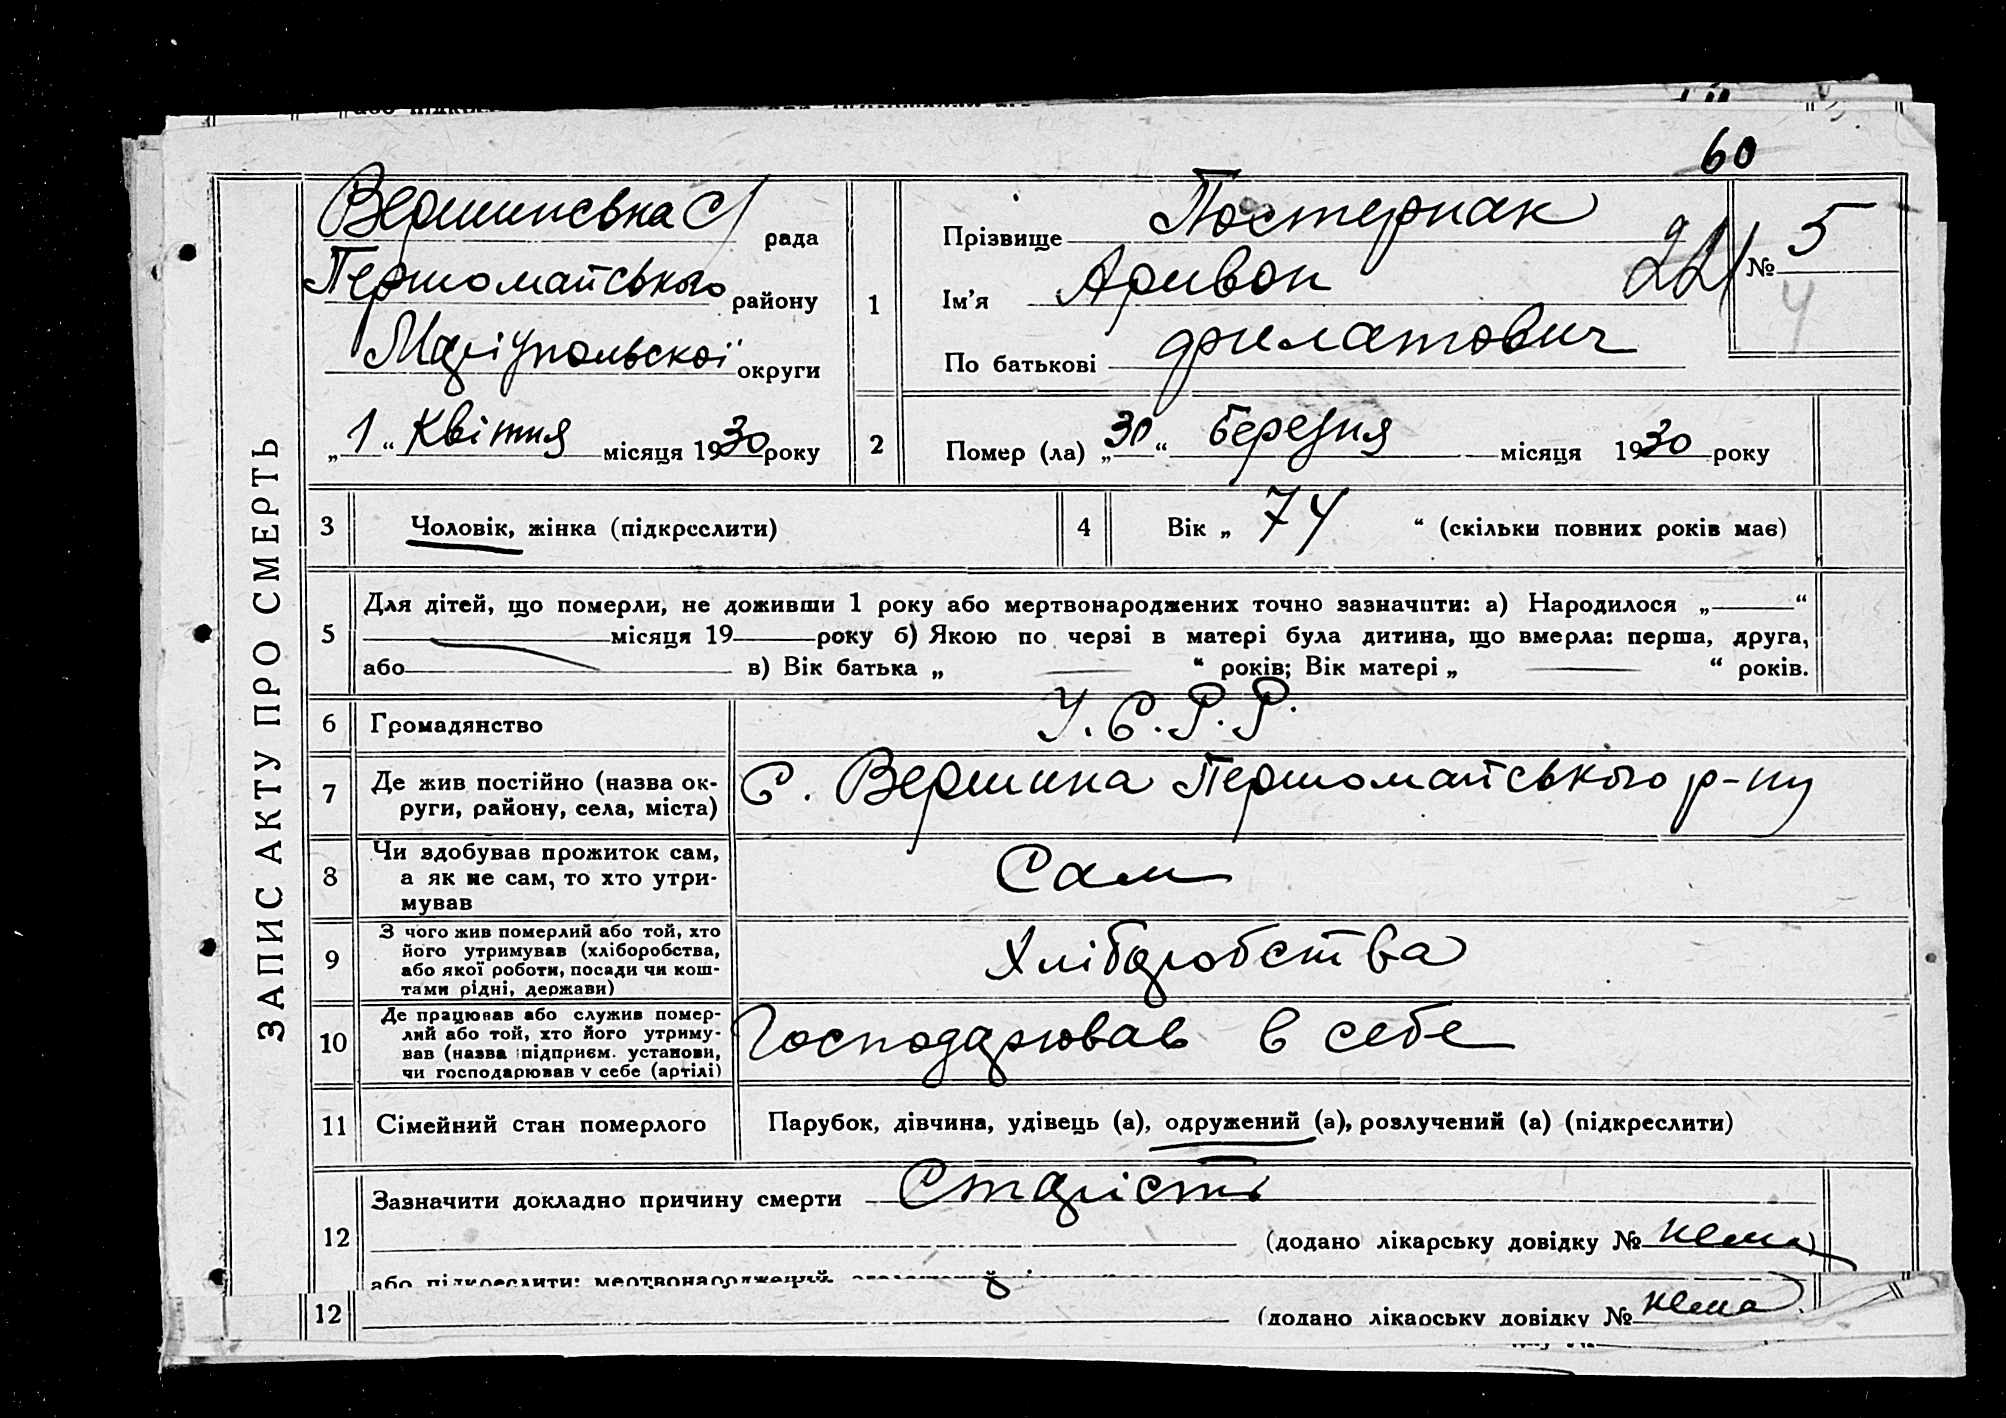 60
ЗАПИС АКТУ ПРО СМЕРТЬ
Вершинсвка С/ рада
Першомайського району
Маріупольскої округи
„1“ Квітня місяця 1930 року
1
Прізвище Постернак
Ім'я Аривон
По батькові Филатович
22
№ 5
4
2
Помер (ла) „30“ березня місяця 1930 року
3 Чоловік, жінка (підкреслити)
4 Вік „ 74 “ (скільки повних років має)
5 Для дітей, що померли, не доживши 1 року або мертвонароджених точно зазначити: а) Народилося „ “
місяця 19 року б) Якою по черзі в матері була дитина, що вмерла: перша, друга,
або в) Вік батька „ “ років; Вік матері „ “ років.
6 Громадянство У.С.Р.Р.
7 Де жив постійно (назва ок-
руги, району, села, міста) С. Вершина Першомайського р-ну
8 Чи здобував прожиток сам,
а як не сам, то хто утри-
мував Сам
9 З чого жив померлий або той, хто
його утримував (хліборобства,
або якої роботи, посади чи кош-
тами рідні, держави) Хліборобства
10 Де працював або служив помер-
лий або той, хто його утриму-
вав (назва підприєм. установи,
чи господарював у себе (артілі) Господарював в себе
11 Сімейний стан померлого Парубок, дівчина, удівець (а), одружений (а), розлучений (а) (підкреслити)
12 Зазначити докладно причину смерти Старість
(додано лікарську довідку № нема)
або підкреслити: мертвонароджений
12 (додано лікарську довідку № нема)